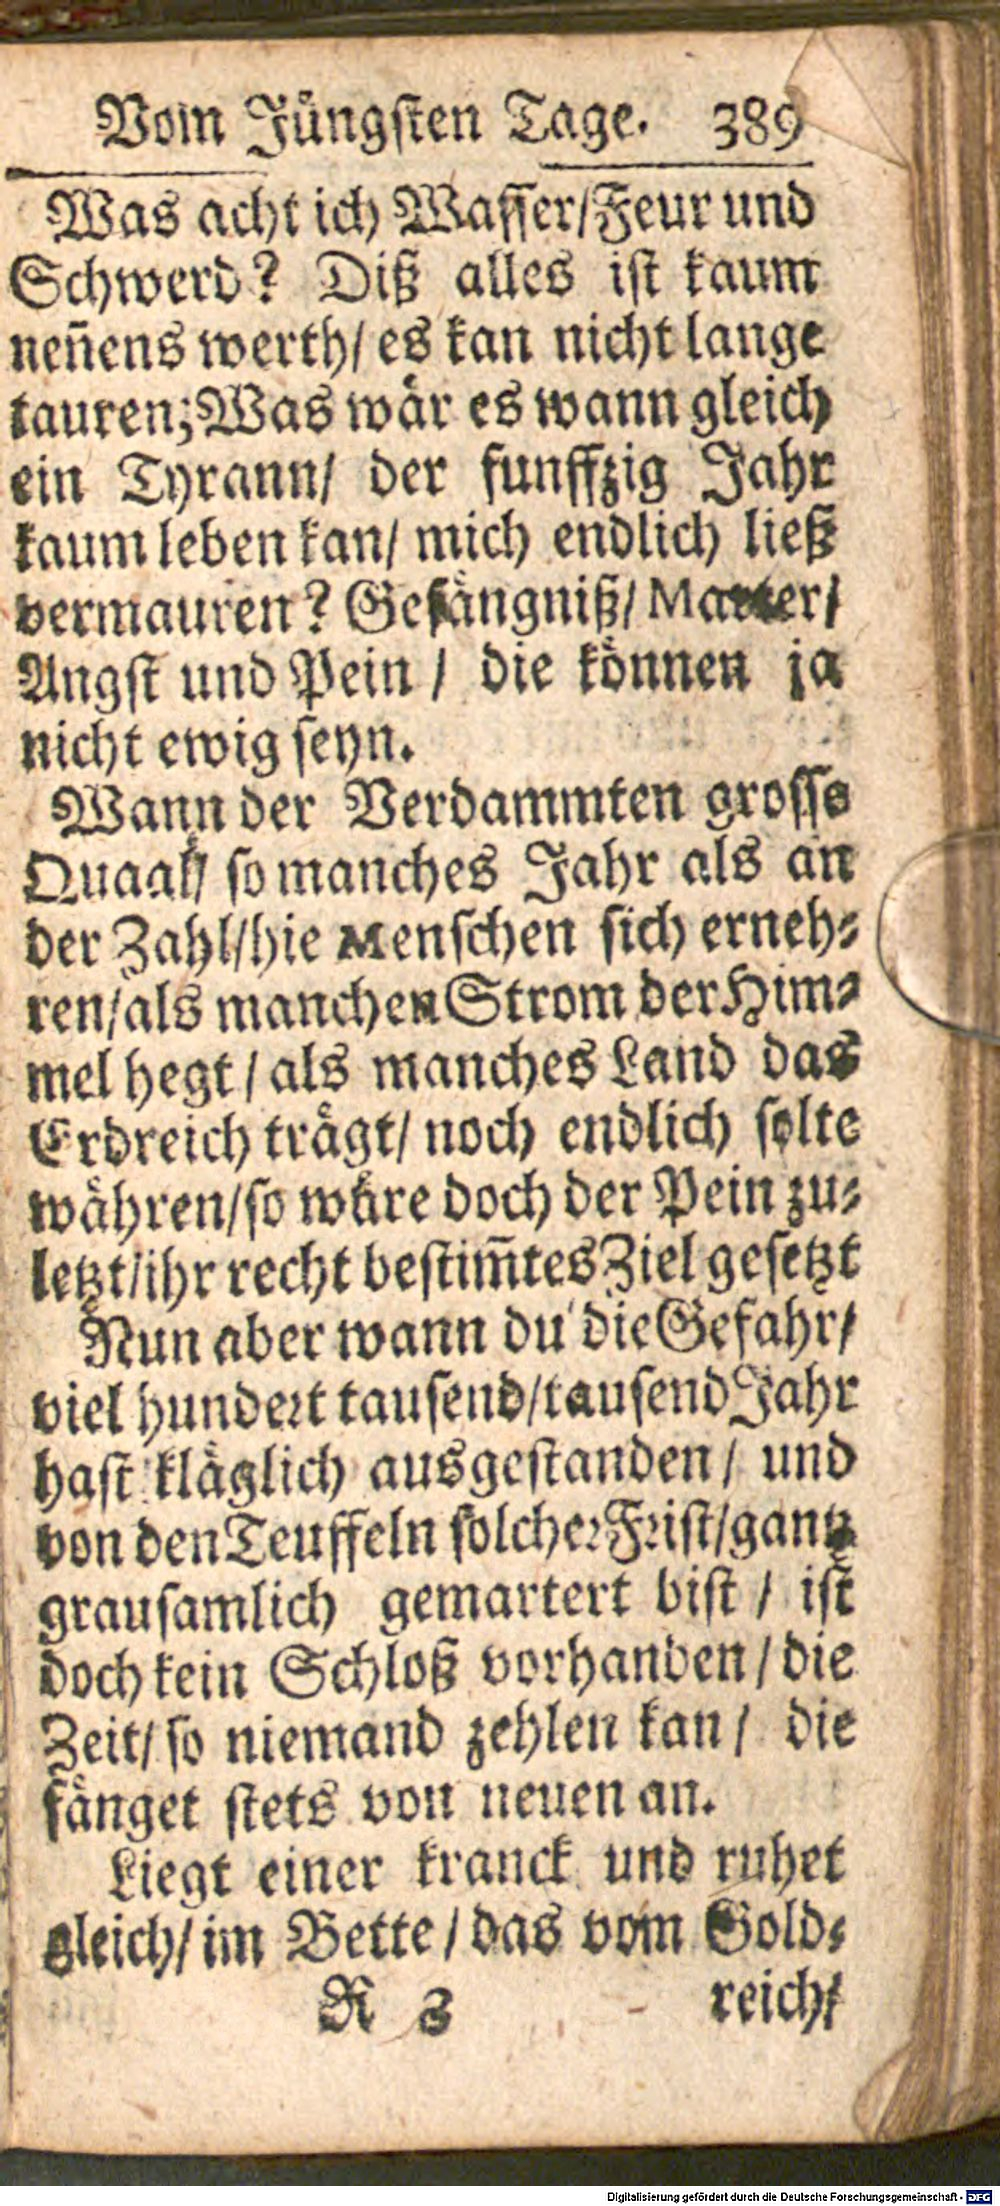 Vom Jüngsten Tage. 389
Was acht ich Wasser/Feur und
Schwerd? Diß alles ist kaum
neñens werth/ es kan nicht lange
tauren; Was wär es wann gleich
ein Tyrann/ der funffzig Jahr
kaum leben kan/ mich endlich ließ
vermauren? Gefängniß/ Marter/
Angst und Pein / die können ja
nicht ewig seyn.
Wann der Verdammten grosse
Quaal/ so manches Jahr als an
der Zahl/hie Menschen sich erneh-
ren/als manchen Strom der Him-
mel hegt / als manches Land das
Erdreich trägt/ noch endlich solte
währen/so wäre doch der Pein zu-
letzt/ihr recht bestim̃tes Ziel gesetzt
Nun aber wann du die Gefahr/
viel hundert tausend/tausend Jahr
hast kläglich ausgestanden / und
von den Teuffeln solcher Frist/gantz
grausamlich gemartert bist / ist
doch kein Schloß vorhanden / die
Zeit/ so niemand zehlen kan / die
fänget stets von neuen an.
Liegt einer kranck und ruhet
gleich/ im Bette / das vom Gold-
R 3 reich/
Digitalisierung gefördert durch die Deutsche Forschungsgemeinschaft - DFG